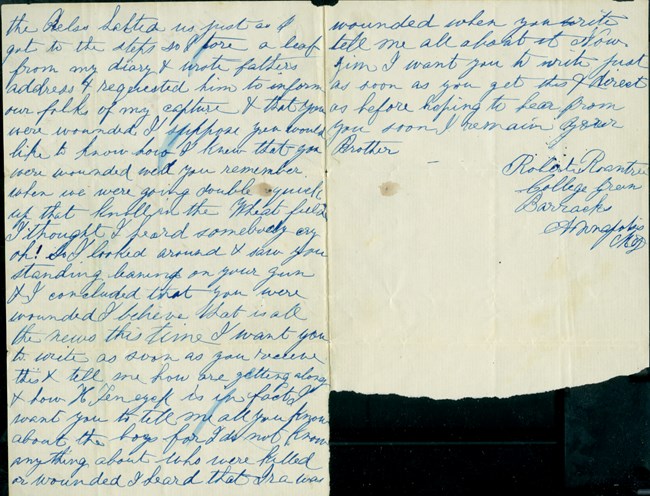 the Rebs halted us just as I
got to the steps so I tore a leaf
from my diary & wrote fathers
address & requested him to inform
our folk of my capture & that you
were wounded I suppose you would
like to know how I knew that you
were wounded well you remember
when we were going double quick
up that knoll in the Wheat field
I thought I heard somebody cry
oh! So I looked around & saw you
standing leaning on your gun
& I concluded that you were
wounded I believe that is all
the news this time I want you
to write as soon as you receive
this & tell me how are getting along
& how H Teneyck is in fact I
want you to tell me all you know
about the boys for I do not know
anything about who were killed
or wounded I heard that Ira was
wounded when you write
tell me all about it Now
Jim I want you to write just
as soon as you get this & direct
as before hoping to hear from
you soon I remain your
Brother
Robert Roantree
College Green
Barracks
Annapolis
Md